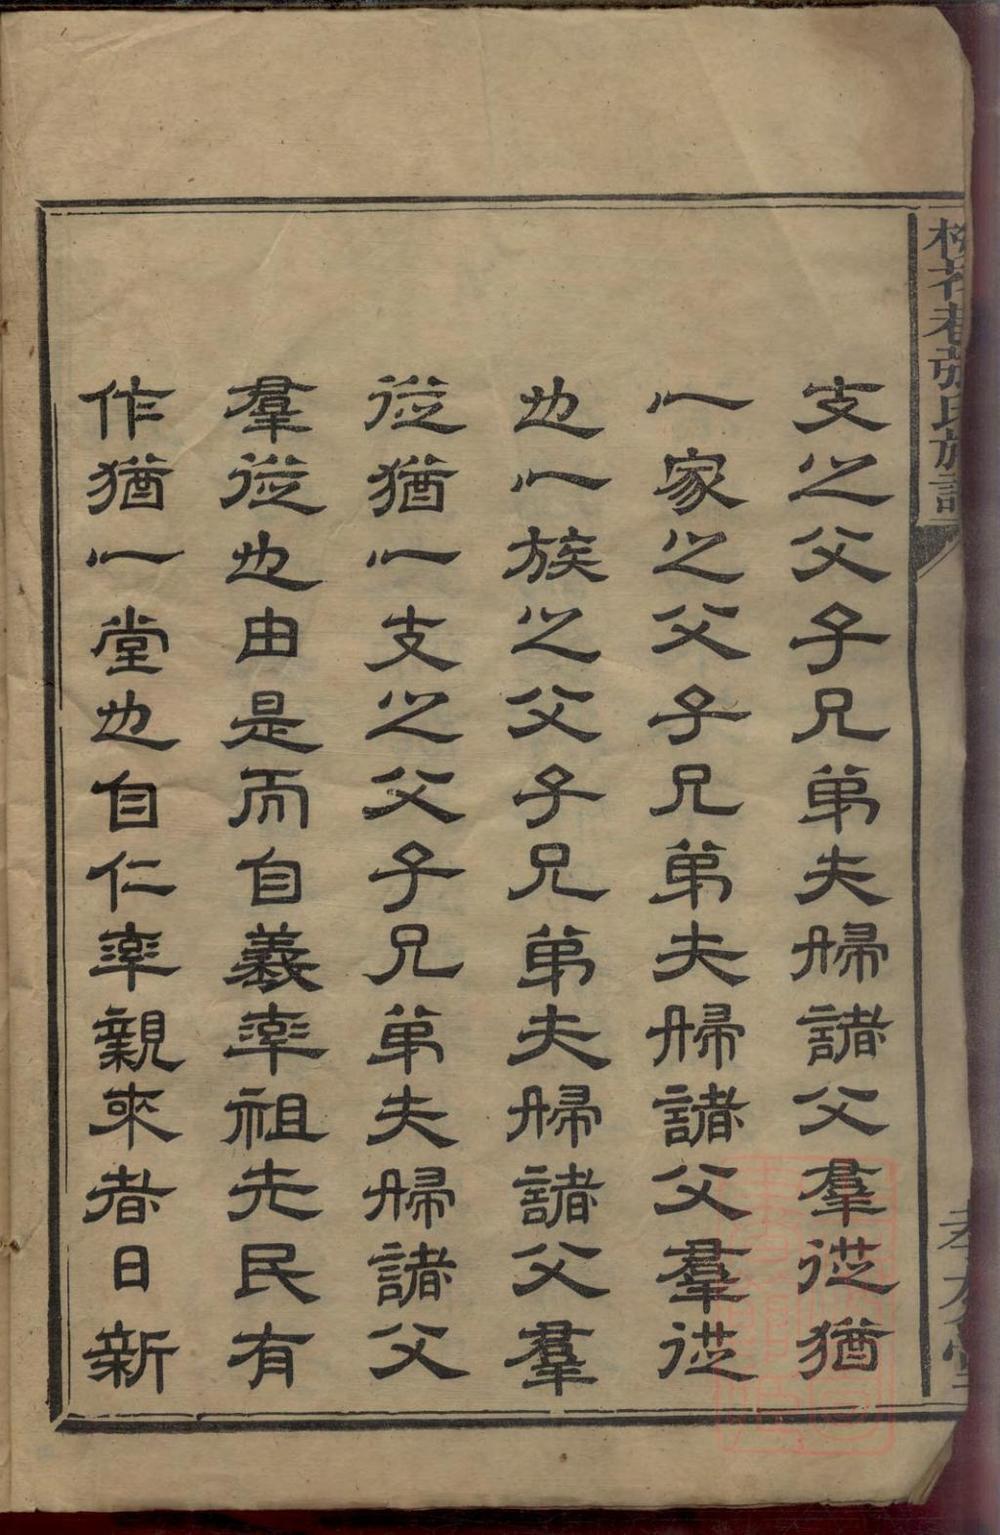 支之父子兄弟夫婦諸父羣從猶
一家之父子兄弟夫婦諸父羣從
也一族之父子兄弟夫婦諸父羣
從猶一支之父子兄弟夫婦諸父
羣從也由是而自義率祖先民有
作猶一堂也自仁率親來者日新
巷張氏族譜
孝友堂